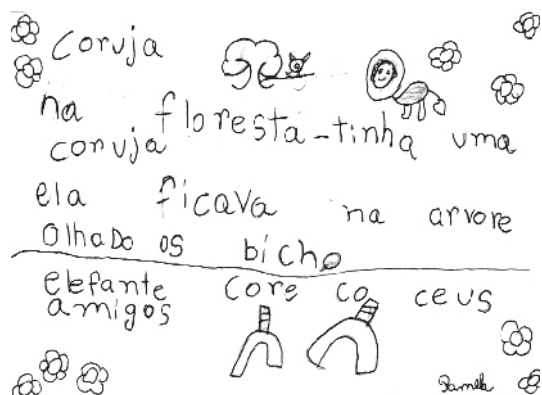 coruja
na floresta-tinha uma
coruja
ela ficava na arvore
olhado os bicho
elefante core co ceus
amigos
Pamela